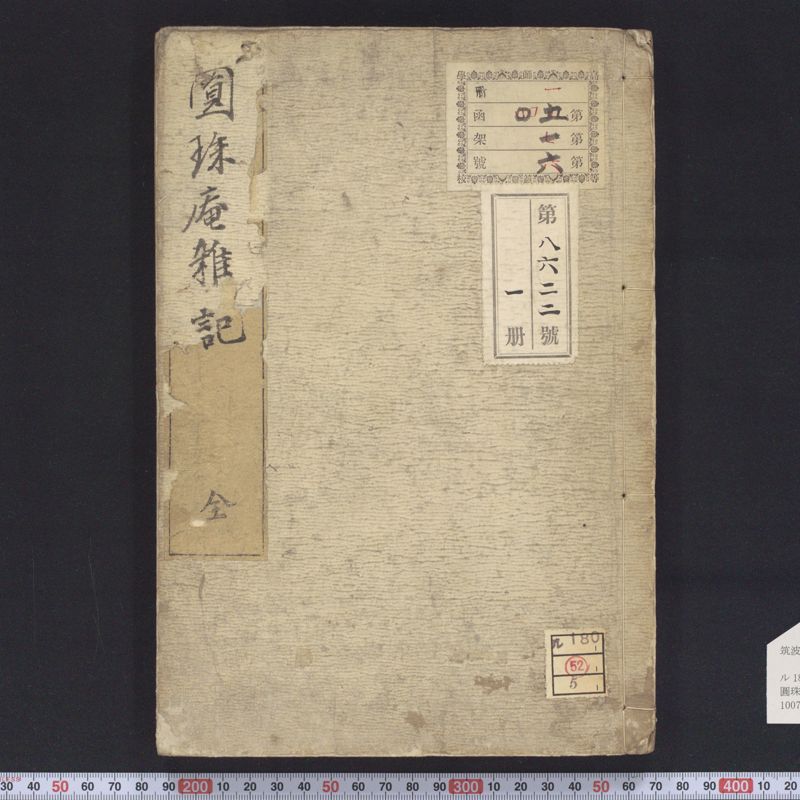 圓珠庵雜記
全
高等師範學校
第 函
第 架
第六號
第八六二二號
一册
ル 180
52
5
筑波
ル 18
圓珠
1007
30 40 50 60 70 80 90 200 10 20 30 40 50 60 70 80 90 300 10 20 30 40 50 60 70 80 90 400 10 20